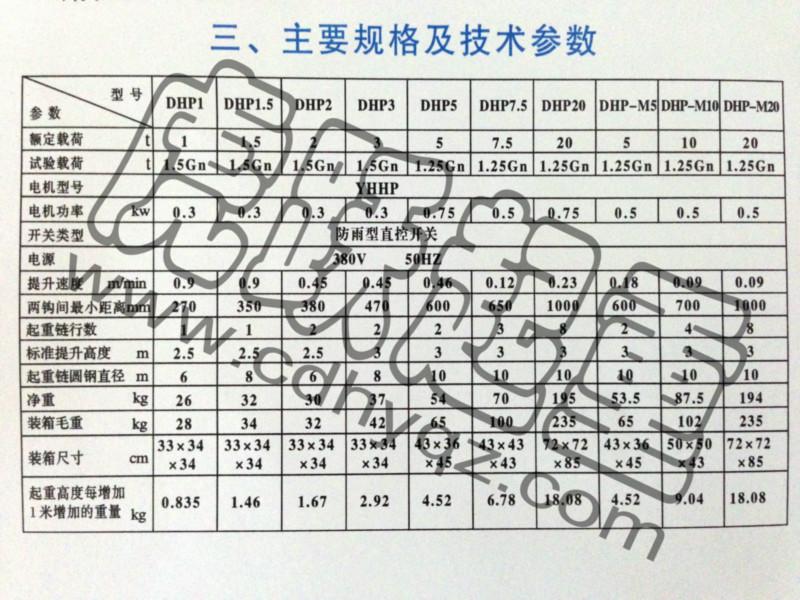 三、主要规格及技术参数
型号 DHP1 DHP1.5 DHP2 DHP3 DHP5 DHP7.5 DHP20 DHP-M5 DHP-M10 DHP-M20
参数
额定载荷 t 1 1.5 2 3 5 7.5 20 5 10 20
试验载荷 t 1.5Gn 1.5Gn 1.5Gn 1.5Gn 1.25Gn 1.25Gn 1.25Gn 1.25Gn 1.25Gn 1.25Gn
电机型号 YHHP
电机功率 kw 0.3 0.3 0.3 0.3 0.75 0.5 0.75 0.5 0.5 0.5
开关类型 防雨型直控开关
电源 380V 50HZ
提升速度 m/min 0.9 0.9 0.45 0.45 0.46 0.12 0.23 0.18 0.09 0.09
两钩间最小距离mm 270 350 380 470 600 650 1000 600 700 1000
起重链行数 1 1 2 2 2 3 8 2 4 8
标准提升高度 m 2.5 2.5 2.5 3 3 3 3 3 3 3
起重链圆钢直径 m 6 8 6 8 10 10 10 10 10 10
净重 kg 26 32 30 37 54 70 195 53.5 87.5 194
装箱毛重 kg 28 34 32 42 65 100 235 65 102 235
装箱尺寸 cm 33×34×34 33×34×34 33×34×34 33×34×34 43×36×45 43×43×43 72×72×85 43×36×45 50×50×43 72×72×85
起重高度每增加
1米增加的重量 kg 0.835 1.46 1.67 2.92 4.52 6.78 18.08 4.52 9.04 18.08